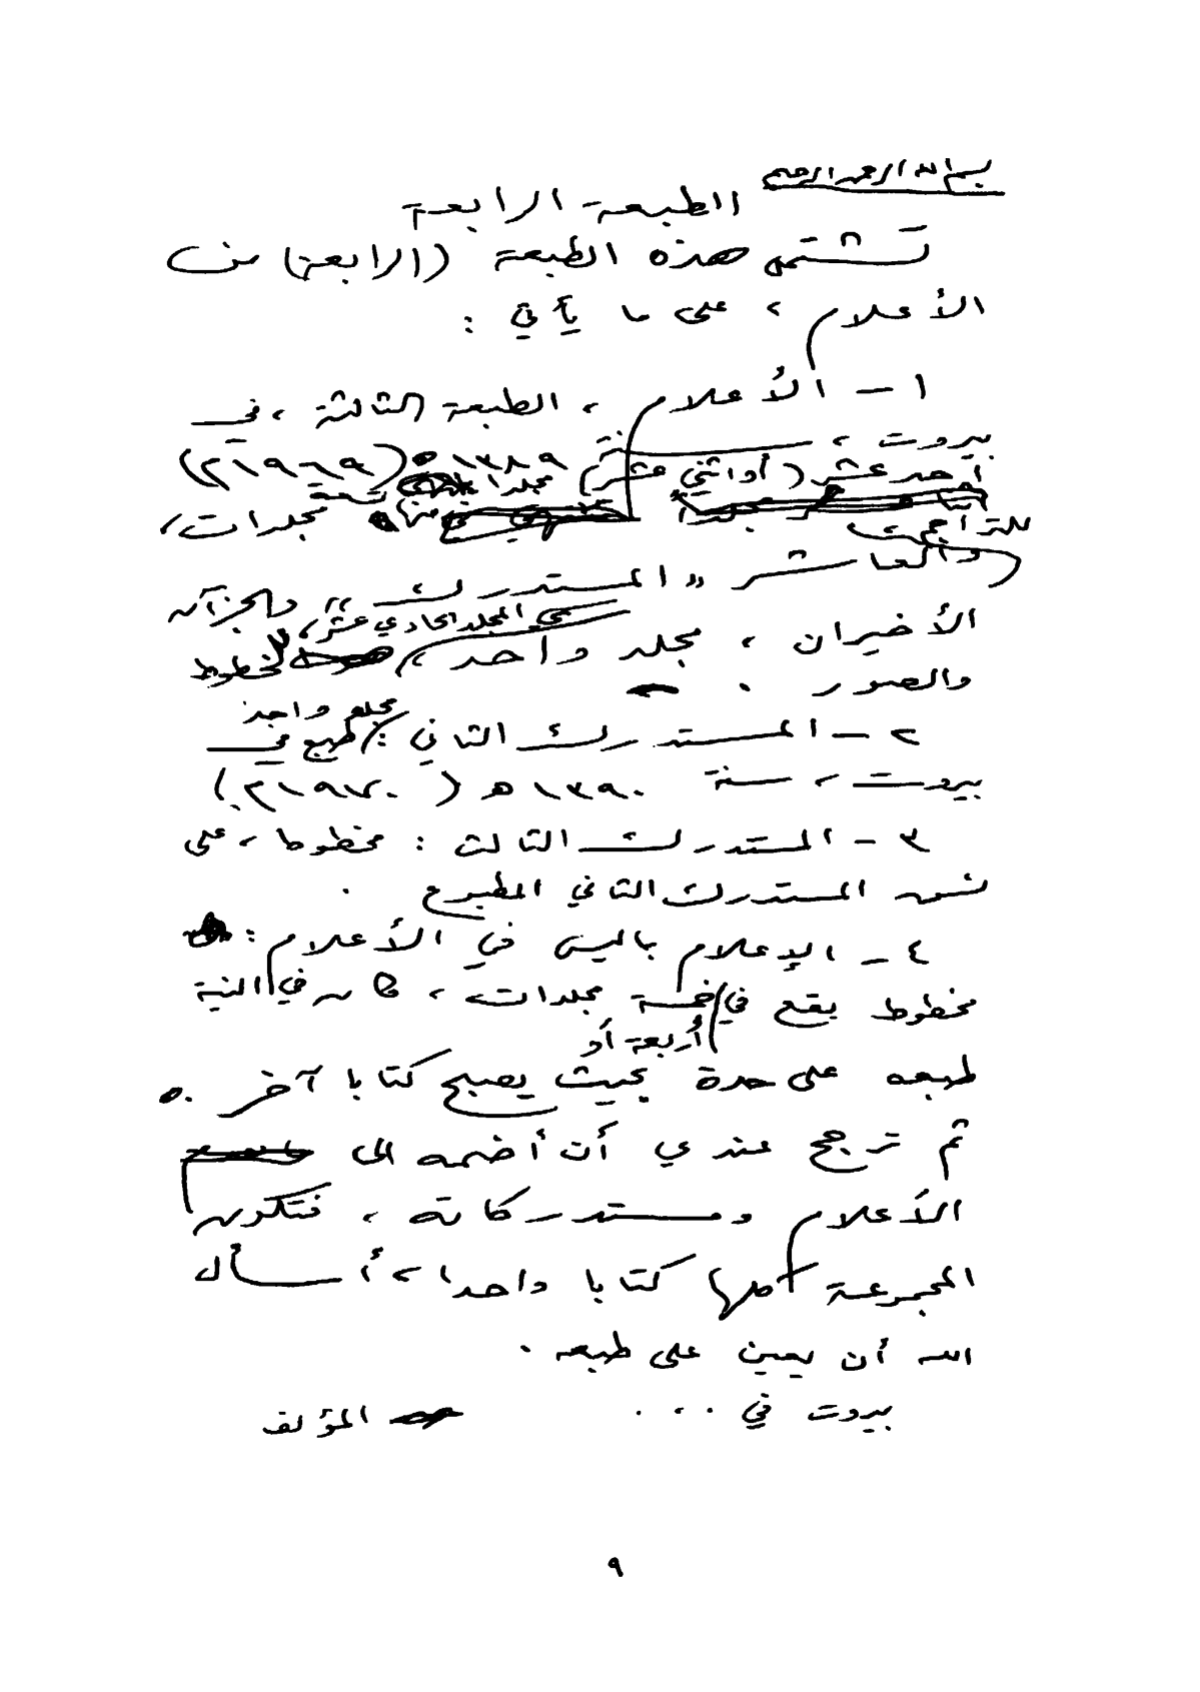 بسم الله الرحمن الرحيم
الطبعة الرابعة
تشتمل هذه الطبعة (الرابعة) من
الأعلام، على ما يأتي :
١ - الأعلام، الطبعة الثالثة، في
بيروت، سنة ١٣٨٩ هـ (١٩٦٩ م)
أحد عشر (أو اثني عشر) مجلدا
منها تسعة مجلدات،
للتراجم
والعاشر «المستدرك» والجزآن
الأخيران، مجلد واحد، هو المجلد الحادي عشر، للخطوط
والصور .
٢ - المستدرك الثاني : مجلد واحد طبع في
بيروت، سنة ١٣٩٠ هـ (١٩٧٠ م)
٣ - المستدرك الثالث : مخطوط، على
نسق المستدرك الثاني المطبوع .
٤ - الإعلام بما ليس في الأعلام :
مخطوط يقع في أربعة أو خمسة مجلدات، كان في النية
طبعه على حدة بحيث يصبح كتابا آخر .
ثم ترجح عندي أن أضمه الى
الأعلام ومستدركاته، فتكون
المجموعة كلها كتابا واحدا، أسأل
الله أن يعين على طبعه .
بيروت في . . . . المؤلف
٩